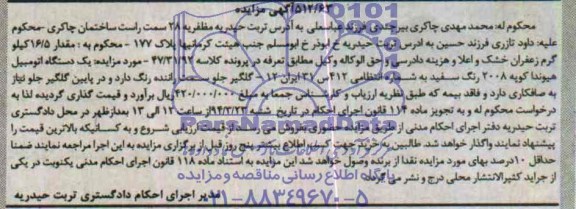 ۵۱۲/۶۳آگهی مزایده
محکوم له: محمد مهدی چاکری بیرجندی فرزند عباسعلی به آدرس تربت حیدریه مظفریه ۲۸ سمت راست ساختمان چاکری -محکوم
علیه: داود تازری فرزند حسین به ادرس تربت حیدریه خ ابوذر خ ابومسلم جنب هیئت کرمانیها پلاک ۱۷۷ - محکوم به : مقدار ۱۶/۵کیلو
گرم زعفران خشک و اعلا و هزینه دادرسی و حق الوکاله وکیل مطابق تعرفه در پرونده کلاسه ۴۷/۳۱/۹۳ - مورد مزایده: یک دستگاه اتومبیل
هیوندا کوپه ۲۰۰۸ رنگ سفید به شماره انتظامی ۴۱۲س۳۱ ایران ۱۲ - گلگیر جلو سمت راننده رنگ دارد و در پایین گلگیر جلو نیاز
به صافکاری دارد و فاقد بیمه که طبق نظریه ارزیاب و کارشناس جمعا به مبلغ ۴۲۰/۰۰۰/۰۰۰ریال برآورد و قیمت گذاری گردیده لذا به
درخواست محکوم له و به تجویز ماده ۱۱۴ قانون اجرای احکام در تاریخ شنبه ۹۴/۳/۲۳از ساعت ۱۲ الی ۱۳ بعدازظهر در محل دادگستری
تربت حیدریه دفتر اجرای احکام مدنی از طریق مزایده حضوری بفروش می رسد از قیمت ارزیابی شروع و به کسانیکه بالاترین قیمت را
پیشنهاد نمایند واگذار خواهد شد. طالبین خرید جهت کسب اطلاع بیشتر پنج روز قبل از برگزاری مزایده به این اجرا مراجعه نمایند ضمنا
حداقل ۱۰درصد بهای مورد مزایده نقدا از برنده وصول خواهد شد این مزایده به استناد ماده ۱۱۸ قانون اجرای احکام مدنی یکنوبت در یکی
از جراید کثیرالانتشار محلی درج و نشر می گردد.
مدیر اجرای احکام دادگستری تربت حیدریه
ParsNamadData
پایگاه اطلاع رسانی مناقصه و مزایده
۰۲۱-۸۸۳۴۹۶۷۰-۵